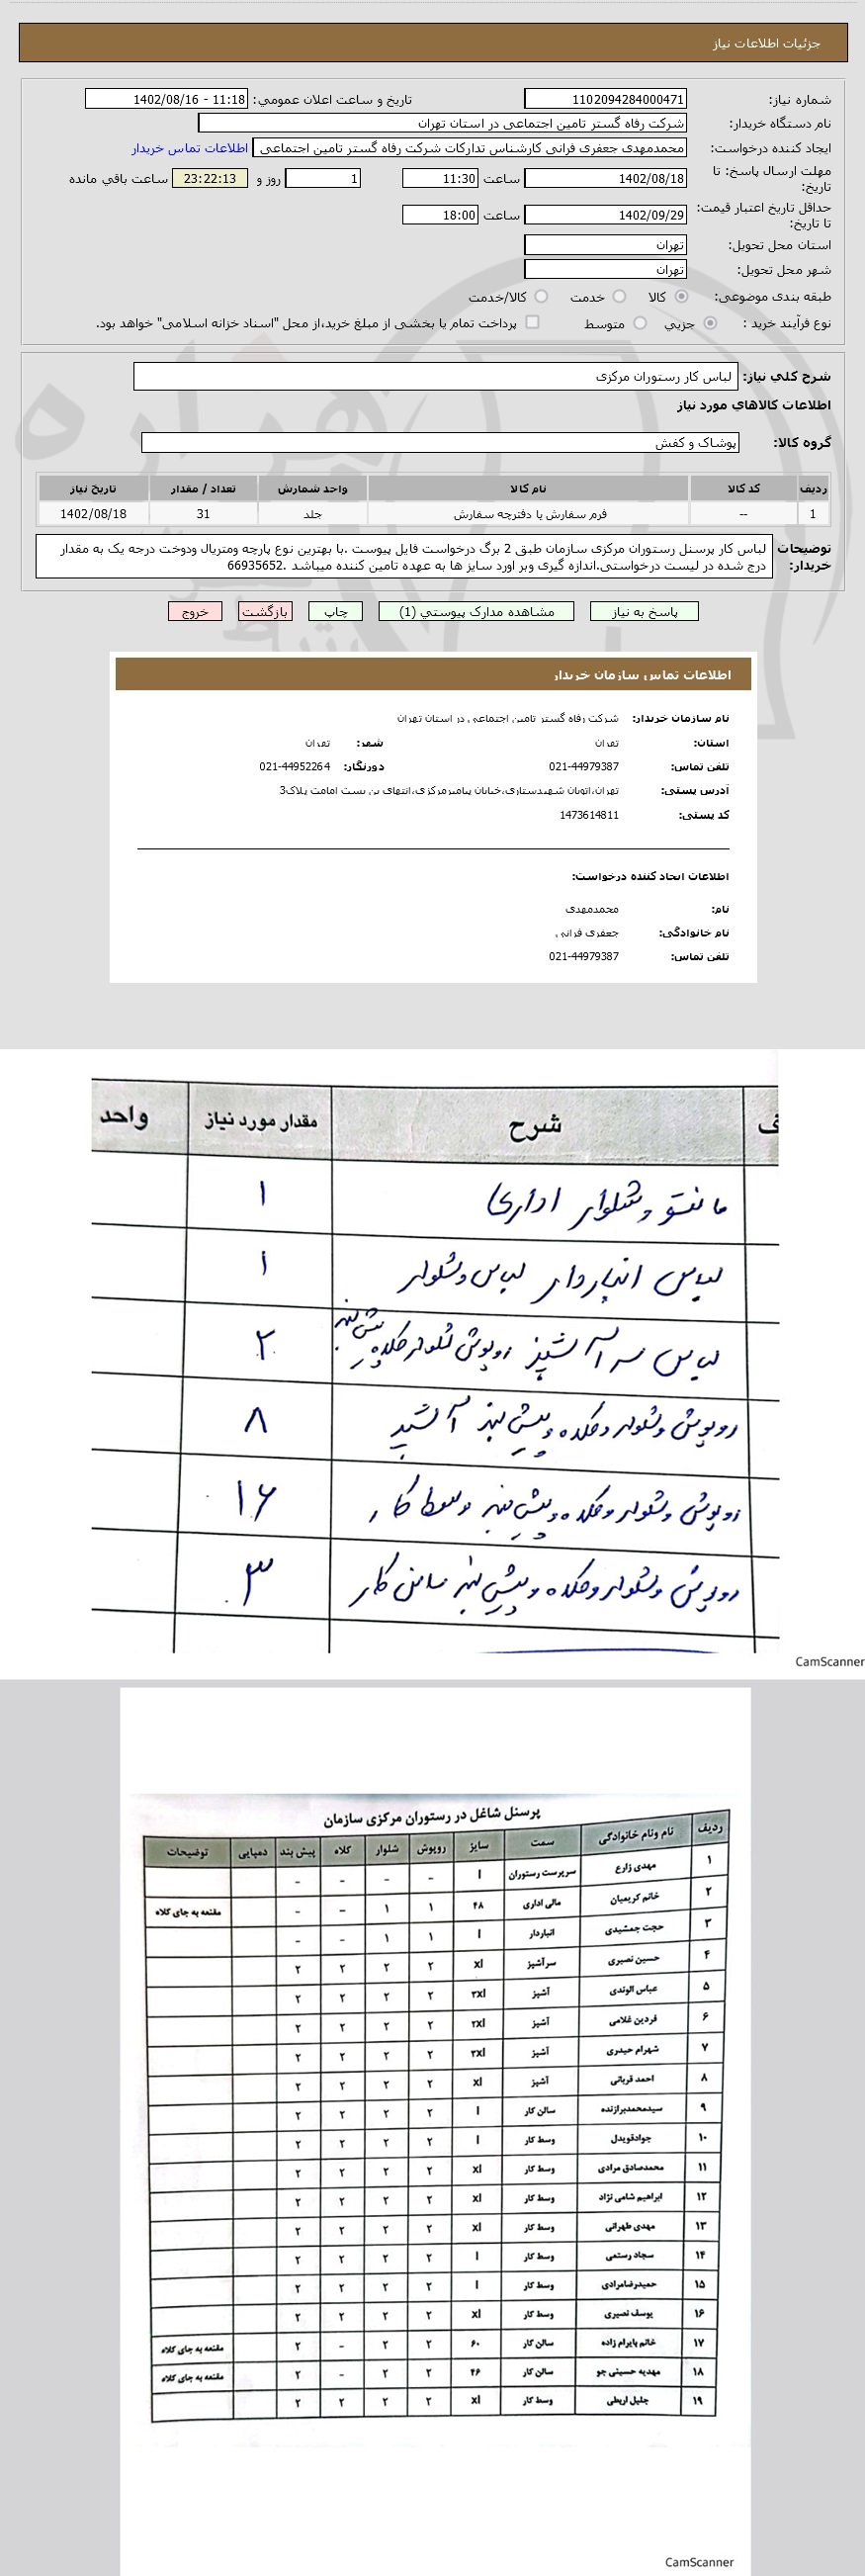 جزئیات اطلاعات نیاز
شماره نیاز: 1102094284000471 تاریخ و ساعت اعلان عمومی: 11:18 - 1402/08/16
نام دستگاه خریدار: شرکت رفاه گستر تامین اجتماعی در استان تهران
ایجاد کننده درخواست: محمدمهدی جعفری قرانی کارشناس تدارکات شرکت رفاه گستر تامین اجتماعی اطلاعات تماس خریدار
مهلت ارسال پاسخ: تا تاریخ: 1402/08/18 ساعت 11:30 1 روز و 23:22:13 ساعت باقي مانده
حداقل تاریخ اعتبار قیمت: تا تاریخ: 1402/09/29 ساعت 18:00
استان محل تحویل: تهران
شهر محل تحویل: تهران
طبقه بندی موضوعی: کالا خدمت کالا/خدمت
نوع فرآیند خرید : جزیي متوسط پرداخت تمام یا بخشی از مبلغ خرید،از محل "اسناد خزانه اسلامی" خواهد بود.
شرح کلي نیاز: لباس کار رستوران مرکزی
اطلاعات کالاهاي مورد نیاز
گروه کالا: پوشاک و کفش
ردیف کد کالا نام کالا واحد شمارش تعداد / مقدار تاریخ نیاز
1 -- فرم سفارش یا دفترچه سفارش جلد 31 1402/08/18
توضیحات خریدار: لباس کار پرسنل رستوران مرکزی سازمان طبق 2 برگ درخواست فایل پیوست .با بهترین نوع پارچه ومتریال ودوخت درجه یک به مقدار
درج شده در لیست درخواستی.اندازه گیری وبر اورد سایز ها به عهده تامین کننده میباشد .66935652
پاسخ به نیاز مشاهده مدارک پیوستي (1) چاپ بازگشت خروج
اطلاعات تماس سازمان خریدار
نام سازمان خریدار: شرکت رفاه گستر تامین اجتماعی در استان تهران
استان: تهران شهر: تهران
تلفن تماس: 021-44979387 دورنگار: 021-44952264
آدرس پستی: تهران،اتوبان شهیدستاری،خیابان پیامبرمرکزی،انتهای بن بست امامت پلاک3
کد پستی: 1473614811
اطلاعات ایجاد کننده درخواست:
نام: محمدمهدی
نام خانوادگی: جعفری قرانی
تلفن تماس: 021-44979387
ف شرح مقدار مورد نیاز واحد
مانتو و شلوار اداری ۱
لباس انباردار لباس و شلوار ۱
لباس سرآشپز روپوش شلوار کلاه پیش بند ۲
روپوش و شلوار و کلاه و پیش بند آشپز ۸
روپوش و شلوار و کلاه و پیش بند وسط کار ۱۶
روپوش و شلوار و کلاه و پیش بند سالن کار ۳
CamScanner
پرسنل شاغل در رستوران مرکزی سازمان
ردیف نام ونام خانوادگی سمت سایز روپوش شلوار کلاه پیش بند دمپایی توضیحات
۱ مهدی زارع سرپرست رستوران l - - - -
۲ خانم کریمیان مالی اداری ۴۸ ۱ ۱ -- - مقنعه به جای کلاه
۳ حجت جمشیدی انباردار l ۱ ۱ - -
۴ حسین نصیری سرآشپز xl ۲ ۲ ۲ ۲
۵ عباس الوندی آشپز ۳xl ۲ ۲ ۲ ۲
۶ فردین غلامی آشپز ۲xl ۲ ۲ ۲ ۲
۷ شهرام حیدری آشپز ۳xl ۲ ۲ ۲ ۲
۸ احمد قربانی آشپز xl ۲ ۲ ۲ ۲
۹ سیدمحمدبرازنده سالن کار l ۲ ۲ ۲ ۲
۱۰ جوادقویدل وسط کار l ۲ ۲ ۲ ۲
۱۱ محمدصادق مرادی وسط کار xl ۲ ۲ ۲ ۲
۱۲ ابراهیم شامی نژاد وسط کار xl ۲ ۲ ۲ ۲
۱۳ مهدی طهرانی وسط کار xl ۲ ۲ ۲ ۲
۱۴ سجاد رستمی وسط کار l ۲ ۲ ۲ ۲
۱۵ حمیدرضامرادی وسط کار l ۲ ۲ ۲ ۲
۱۶ یوسف نصیری وسط کار xl ۲ ۲ ۲ ۲
۱۷ خانم بایرام زاده سالن کار ۶۰ ۲ ۲ - ۲ مقنعه به جای کلاه
۱۸ مهدیه حسینی جو سالن کار ۴۶ ۲ ۲ - ۲ مقنعه به جای کلاه
۱۹ جلیل اربطی وسط کار xl ۲ ۲ ۲ ۲
CamScanner